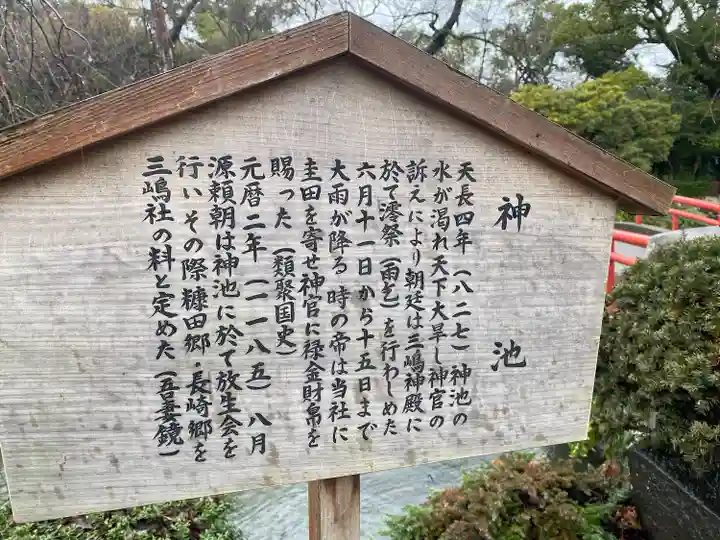 神池
天長四年（八二七）神池の
水が渇れ天下大旱し神官の
訴えにより朝廷は三嶋神殿に
於て澪祭（雨乞）を行わしめた
六月十一日から十五日まで
大雨が降る 時の帝は当社に
圭田を寄せ神官に禄金財帛を
賜った（類聚国史）
元暦二年（一一八五）八月
源頼朝は神池に於て放生会を
行いその際糠田郷・長崎郷を
三嶋社の料と定めた（吾妻鏡）